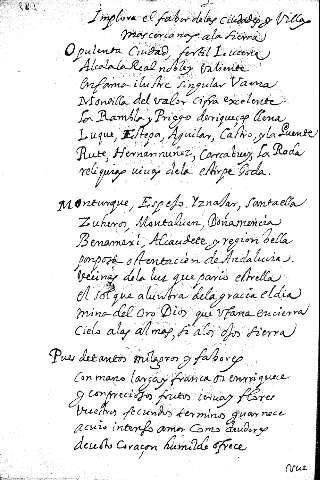 Implora el fabor de las ciudades y Villas
mas cercanas a la sierra
Opulenta Ciudad, fertil Lucena
Alcala la Real noble y valiente
en fama ilustre singular Vaena
Montilla del valor cifra excelente
La Rambla y Priego de riqueças llena
Luque, Estepa, Aguilar, Castro, y la Puente
Rute, Hernannuñez, Carcabuey, La Roda
reliquias vivas de la estirpe Goda.
Monturque, Espejo, Yznaxar, Santaella
Zuheros, Montalvan, Doñamencia
Benamexi, Alcaudete, y region bella
pomposa ostentacion de Andalucia
vecinas de la luz que pario estrella
el sol que alumbra de la gracia el dia
mina del Oro Dios que ufana encierra
Cielo a las almas, si a los ojos sierra
Pues de tantos milagros y fabores
con mano larga y franca os enrriquece
y con preciosos frutos vivas flores
vuestros fecundos terminos guarnece
a cuio inmenso amor como deudores
devoto Coraçon humilde ofrece